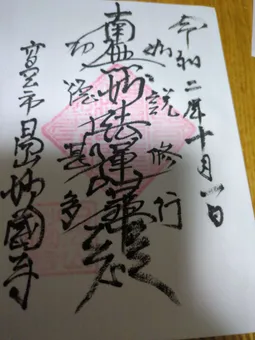 令和二年十月一日
如説修行
南無妙法蓮華経
功徳甚多
富士宮市 妙國寺